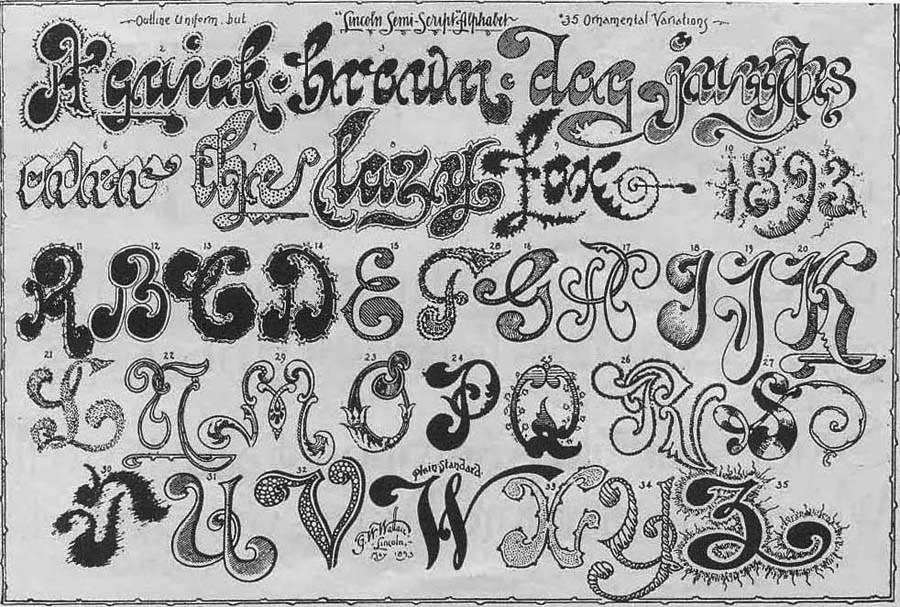 Outline Uniform, but "Lincoln Semi-Script" Alphabet "35 Ornamental Variations
2 3
A quick brown dog jumps
6 7 8 9 10
over the lazy fox 1893
11 12 13 14 15 28 16 17 18 19 20
A B C D E F G H I J K
21 22 29 23 24 25 26 27
L N M O P Q R S
30 31 32 Plain Standard. 33 34 35
T U V W X Y Z
G.W. Wallace
Lincoln,-
1893